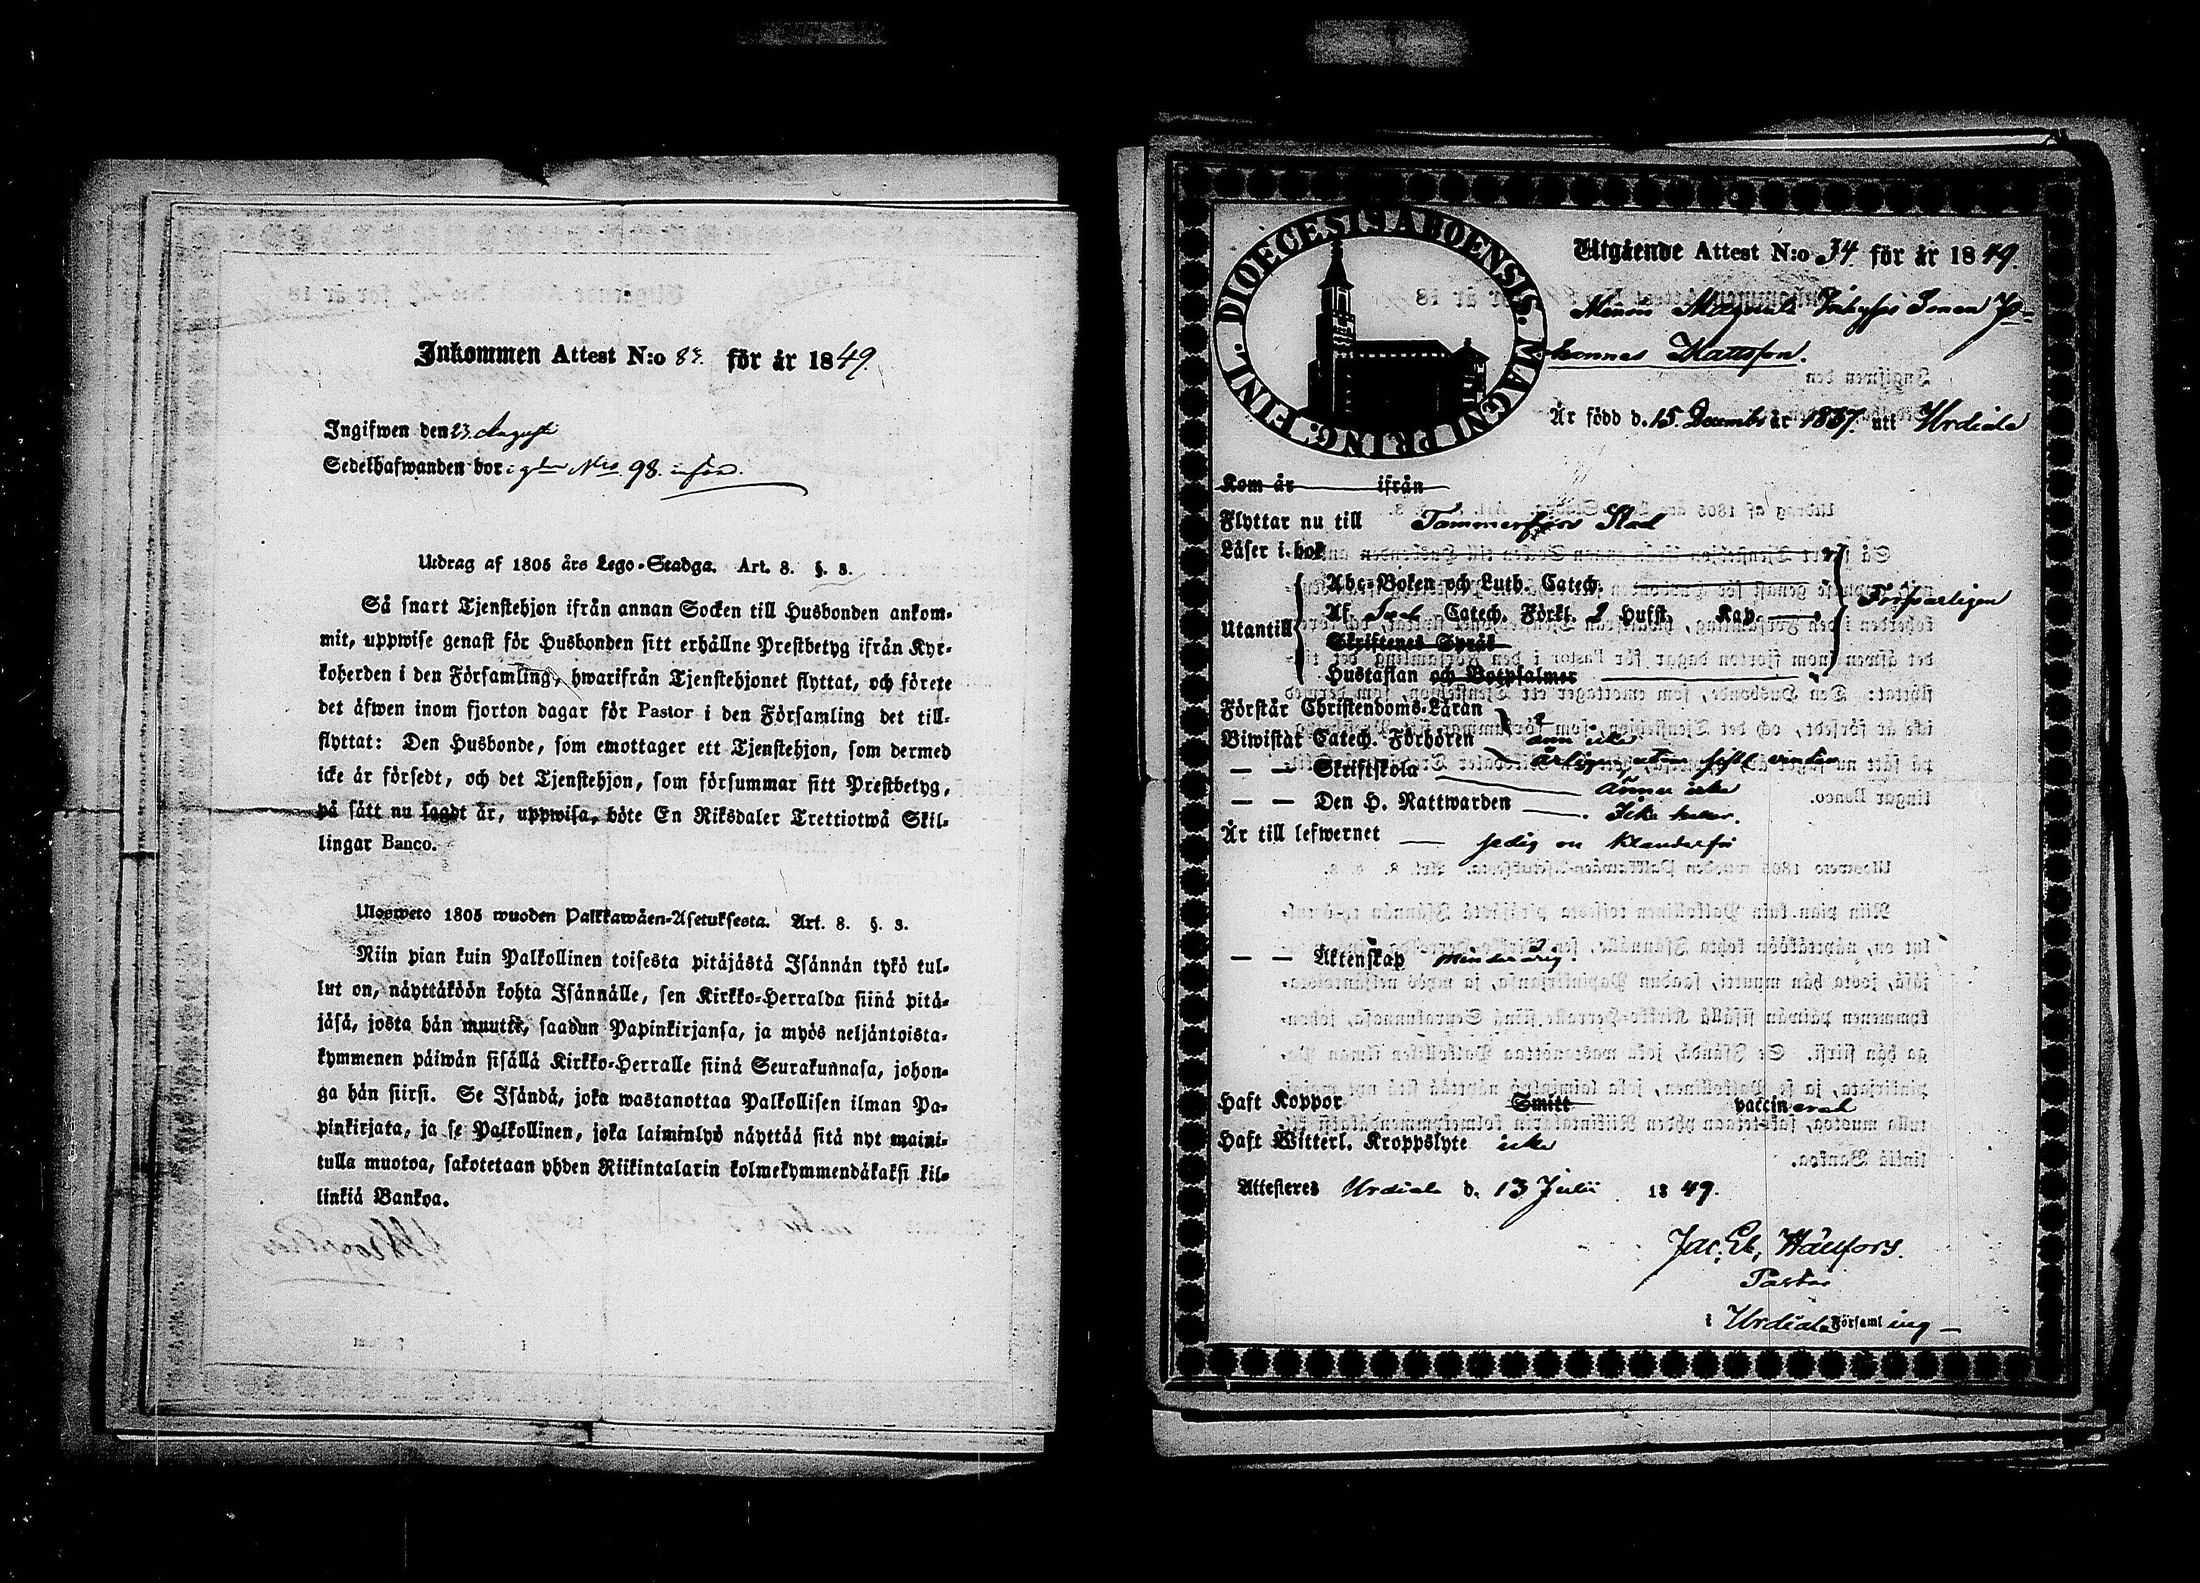 Inkommen Attest N:o 83. för år 1849.
Ingifwen den 23. Augusti
Sedelhafwanden bor i gden N:ro 98. inför.
Utdrag af 1805 års Lego-Stadga. Art. 8. §. 3.
Så snart Tjenstehjon ifrån annan Socken till Husbonden ankom-
mit, uppwise genast för Husbonden sitt erhållne Prestbetyg ifrån Kyr-
koherden i den Församling, hwarifrån Tjenstehjonet flyttat, och förete
det äfwen inom fjorton dagar för Pastor i den Församling det till-
flyttat: Den Husbonde, som emottager ett Tjenstehjon, som dermed
icke är försedt, och det Tjenstehjon, som försummar sitt Prestbetyg,
på sätt nu sagdt är, uppwisa, böte En Riksdaler Trettiotwå Skil-
lingar Banco.
Ulosweto 1805 wuoden Palkkawäen-Asetuksesta. Art. 8. §. 3.
Niin pian kuin Palkollinen toisesta pitäjästä Isännän tykö tul-
lut on, näyttäköön kohta Isännälle, sen Kirkko-Herralda siinä pitä-
jäsä, josta hän muutti, saadun Papinkirjansa, ja myös neljäntoista-
kymmenen päiwän sisällä Kirkko-Herralle siinä Seurakunnasa, johon-
ga hän siirsi. Se Isändä, joka wastanottaa Palkollisen ilman Pa-
pinkirjata, ja se Palkollinen, joka laiminlyö näyttää sitä nyt maini-
tulla muotoa, sakotetaan yhden Riikintalarin kolmekymmendäkaksi kil-
linkiä Bankoa.
FINL. DIOECESIS ABOENSIS. MAGNI PRING.
Utgående Attest N:o 34. för år 1849.
Jo-
hannes Mattsson.
Är född d. 15. Decemb. år 1837. uti Urdiala
Kom år ifrån
Flyttar nu till Tammerfors Stad
Läser i bok
Abc-Boken och Luth. Catech.
Af Catech. Förkl. 2 Hufst. Kap
Försvarligen
Utantill
Skriftenes Språk
Hustaflan och Botpsalmer
Förstår Christendoms-Läran
Biwistat Catech. Förhören
årligen, utom sistl. vinter
— — Skriftskola ännu icke
— — Den H. Nattwarden Icke heller.
Är till lefwernet sedig och klanderfri
— — Äktenskap minderårig
Haft Koppor Smitt vaccinerad
Haft Witterl. Kroppslyte icke
Attesteres Urdiala d. 13 Julii 1849.
Jac. Eb. Hällfors.
Pastor
i Urdiala Församling